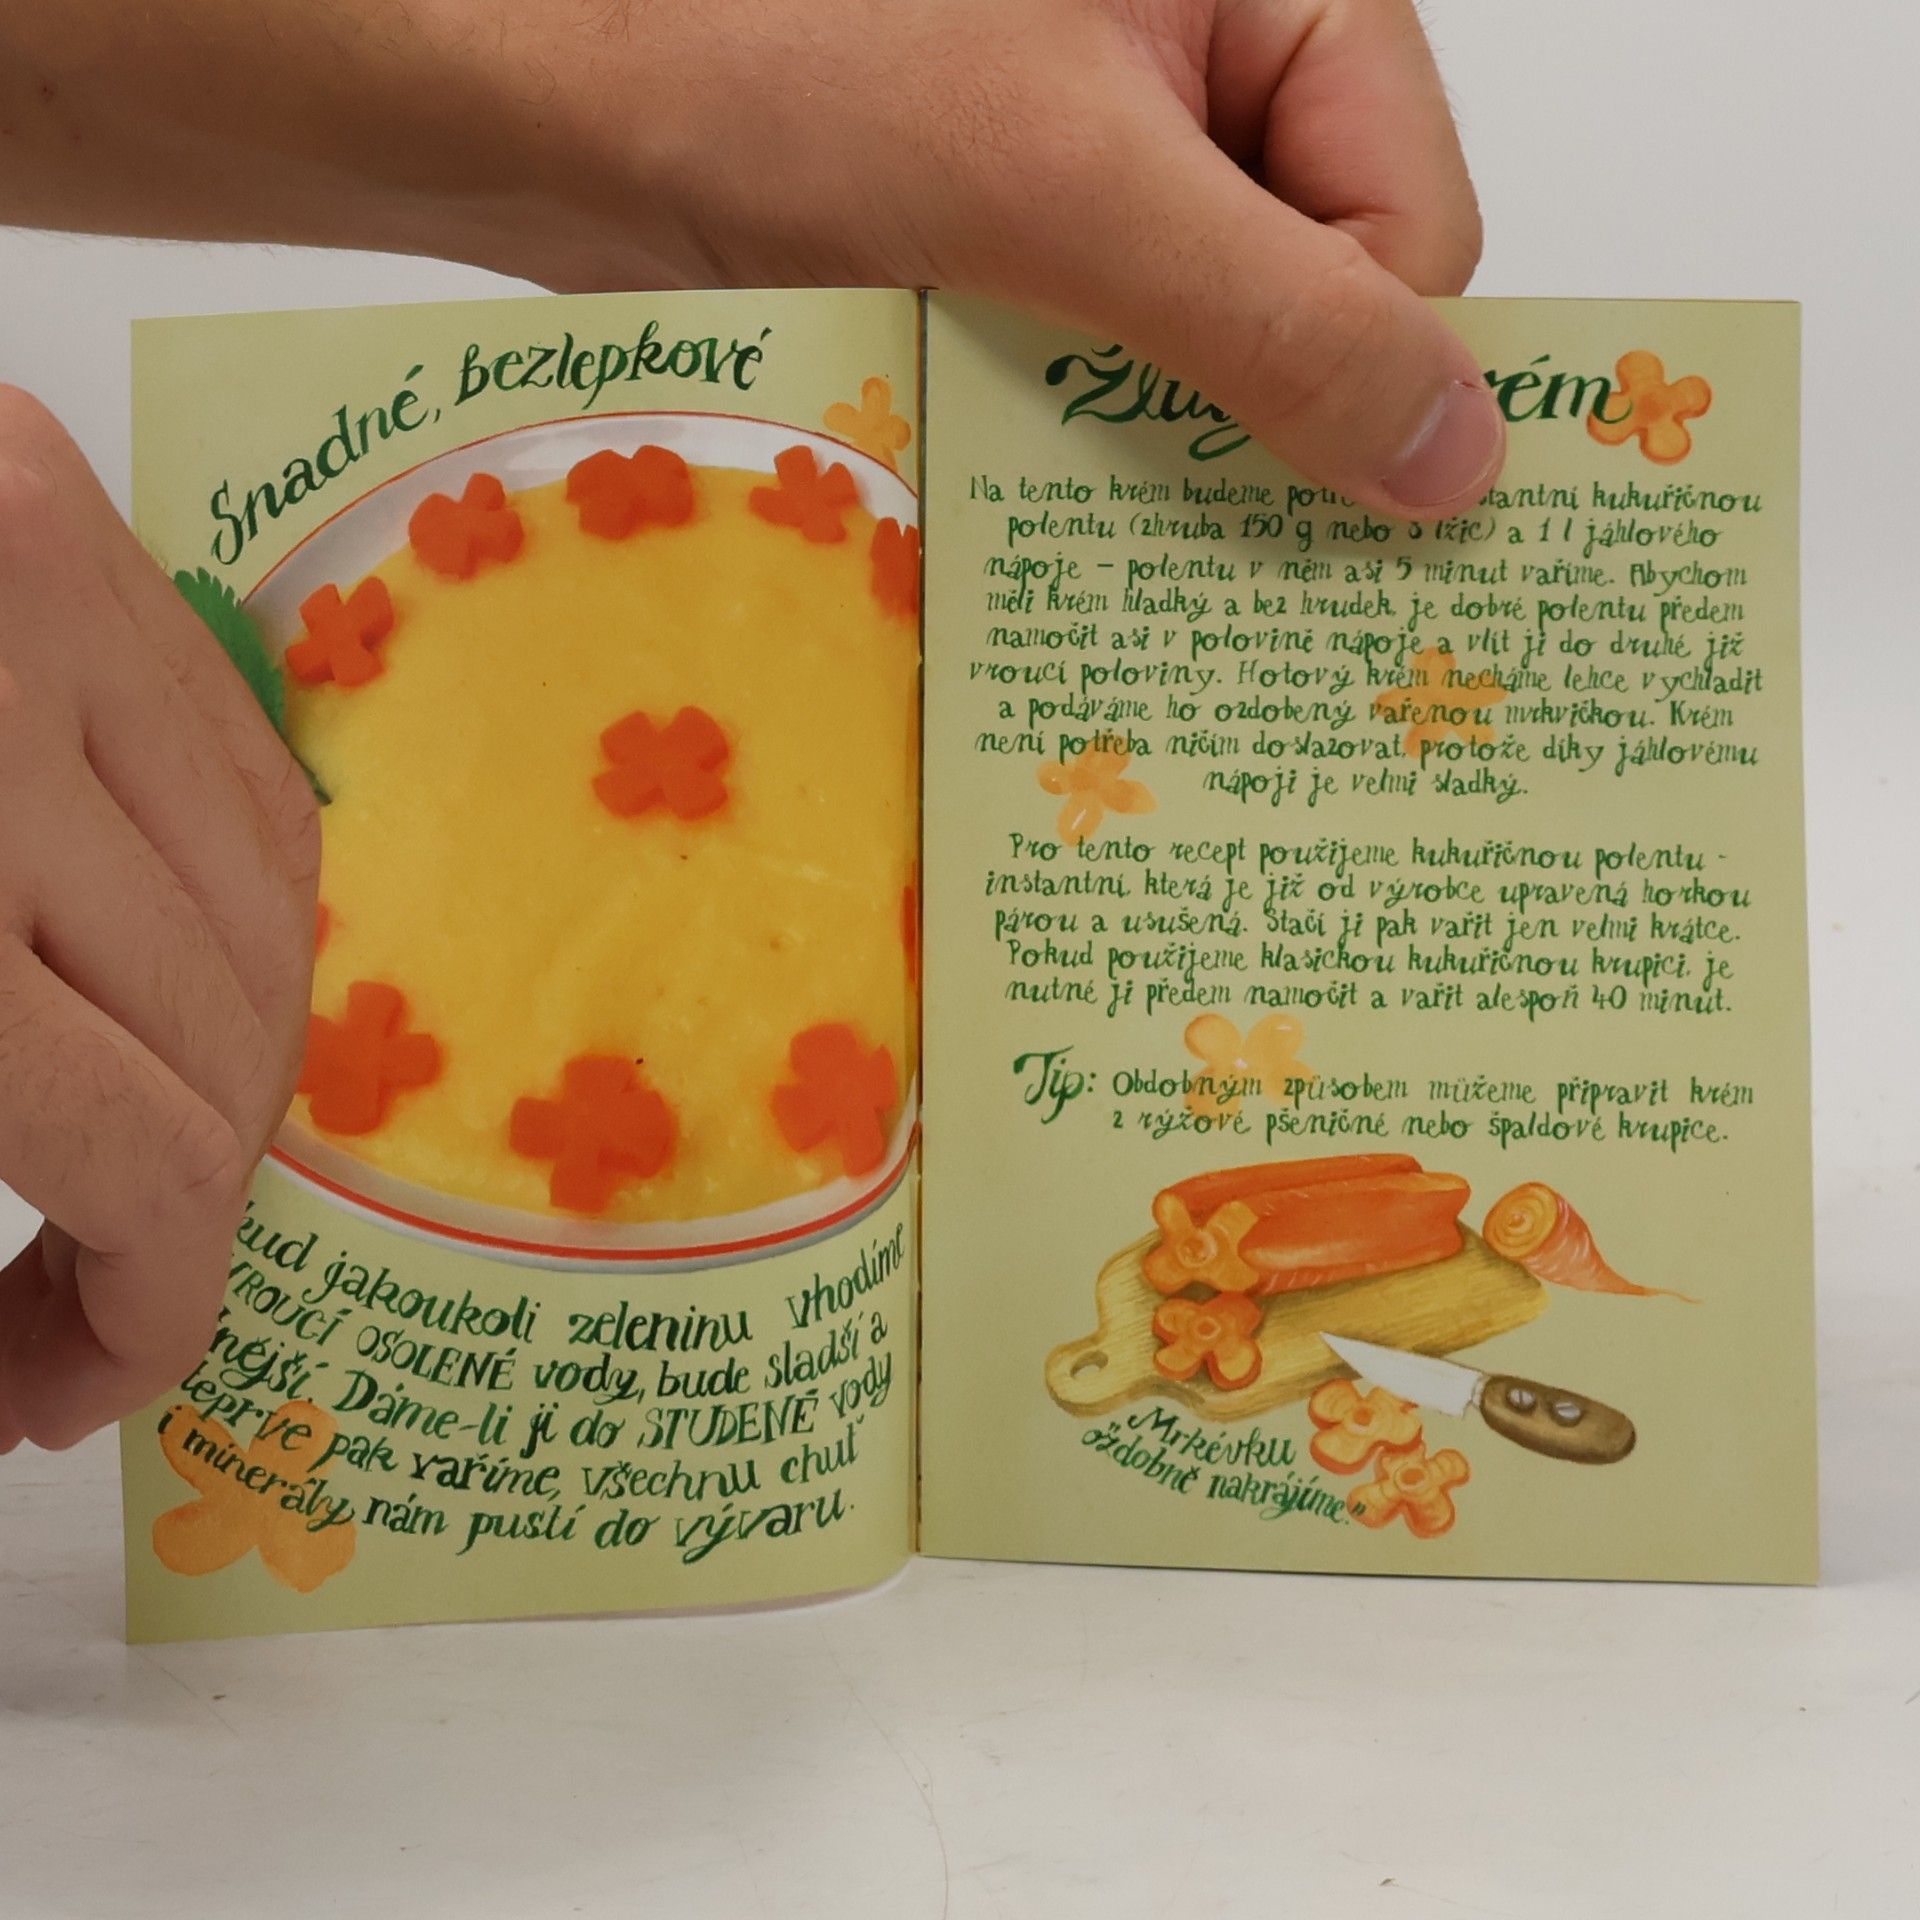 Snadné, bezlepkové
jakoukoli zeleninu vhodíme
VROUCÍ OSOLENÉ vody, bude sladší a
Dáme-li ji do STUDENÉ vody
teprve pak vaříme, všechnu chuť
i minerály nám pustí do vývaru.
Na tento krém budeme kukuřičnou
polentu (zhruba 150 g nebo lžic) a 1 l jáhlového
nápoje - polentu v něm asi 5 minut vaříme. Abychom
měli krém hladký a bez hrudek, je dobré polentu předem
namočit asi v polovině nápoje a vlít ji do druhé již
vroucí poloviny. Hotový krém necháme lehce vychladit
a podáváme ho ozdobený vařenou mrkvičkou. Krém
není potřeba ničím doslazovat, protože díky jáhlovému
nápoji je velmi sladký.
Pro tento recept použijeme kukuřičnou polentu -
instantní, která je již od výrobce upravená horkou
párou a usušená. Stačí ji pak vařit jen velmi krátce.
Pokud použijeme klasickou kukuřičnou krupici, je
nutné ji předem namočit a vařit alespoň 40 minut.
Tip: Obdobným způsobem můžeme připravit krém
z rýžové, pšeničné nebo špaldové krupice.
"Mrkévku
ozdobně nakrájíme."